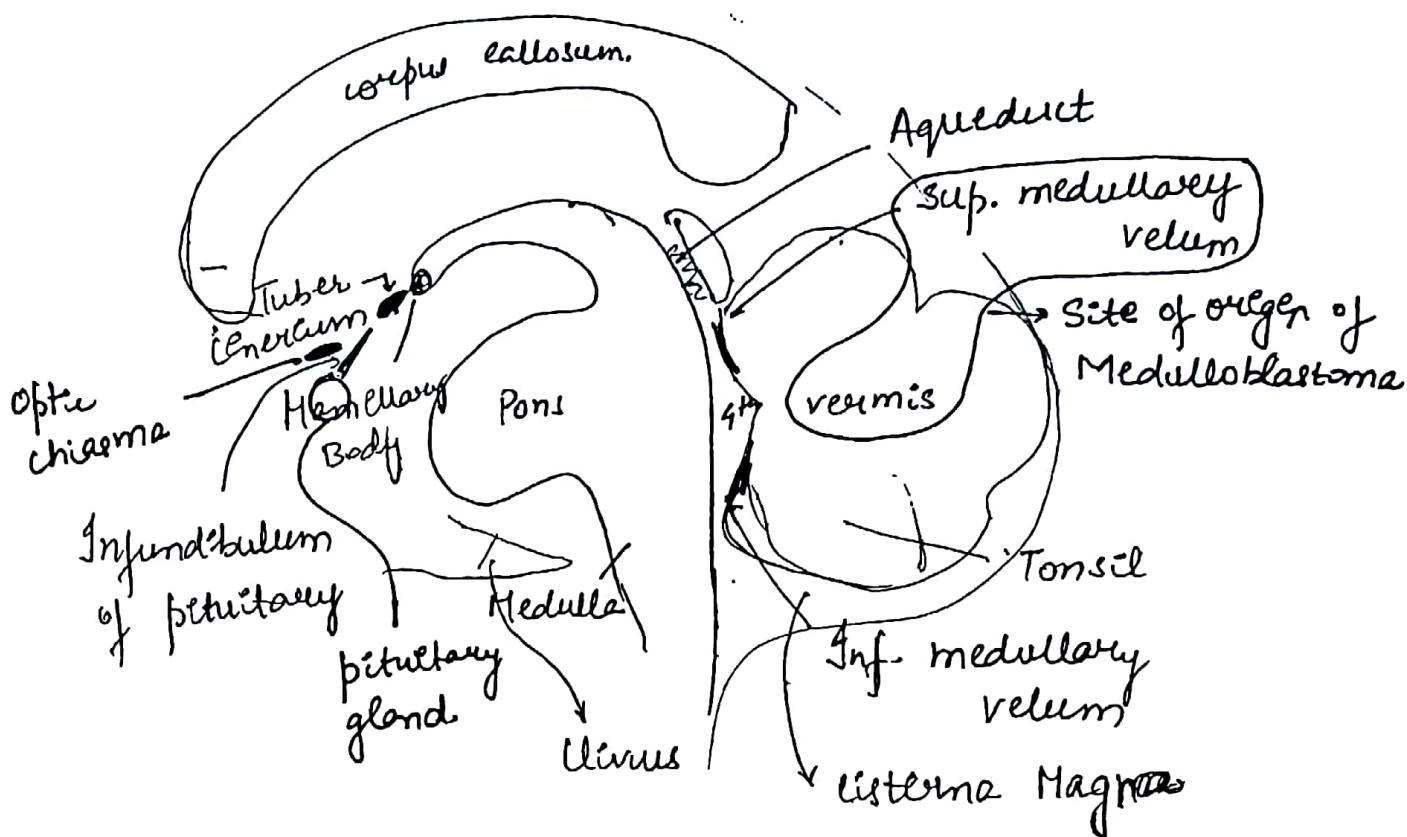 corpus callosum.
Aqueduct
Sup. medullary
velum
Tuber
cenercum
Site of origen of
Medulloblastoma
Optic
chiasma
Mamellary
Body
Pons
4th
vermis
Infundibulum
of pituitary
Tonsil
Medulla
pituitary
gland
Inf. medullary
velum
Clivus
cisterna Magna